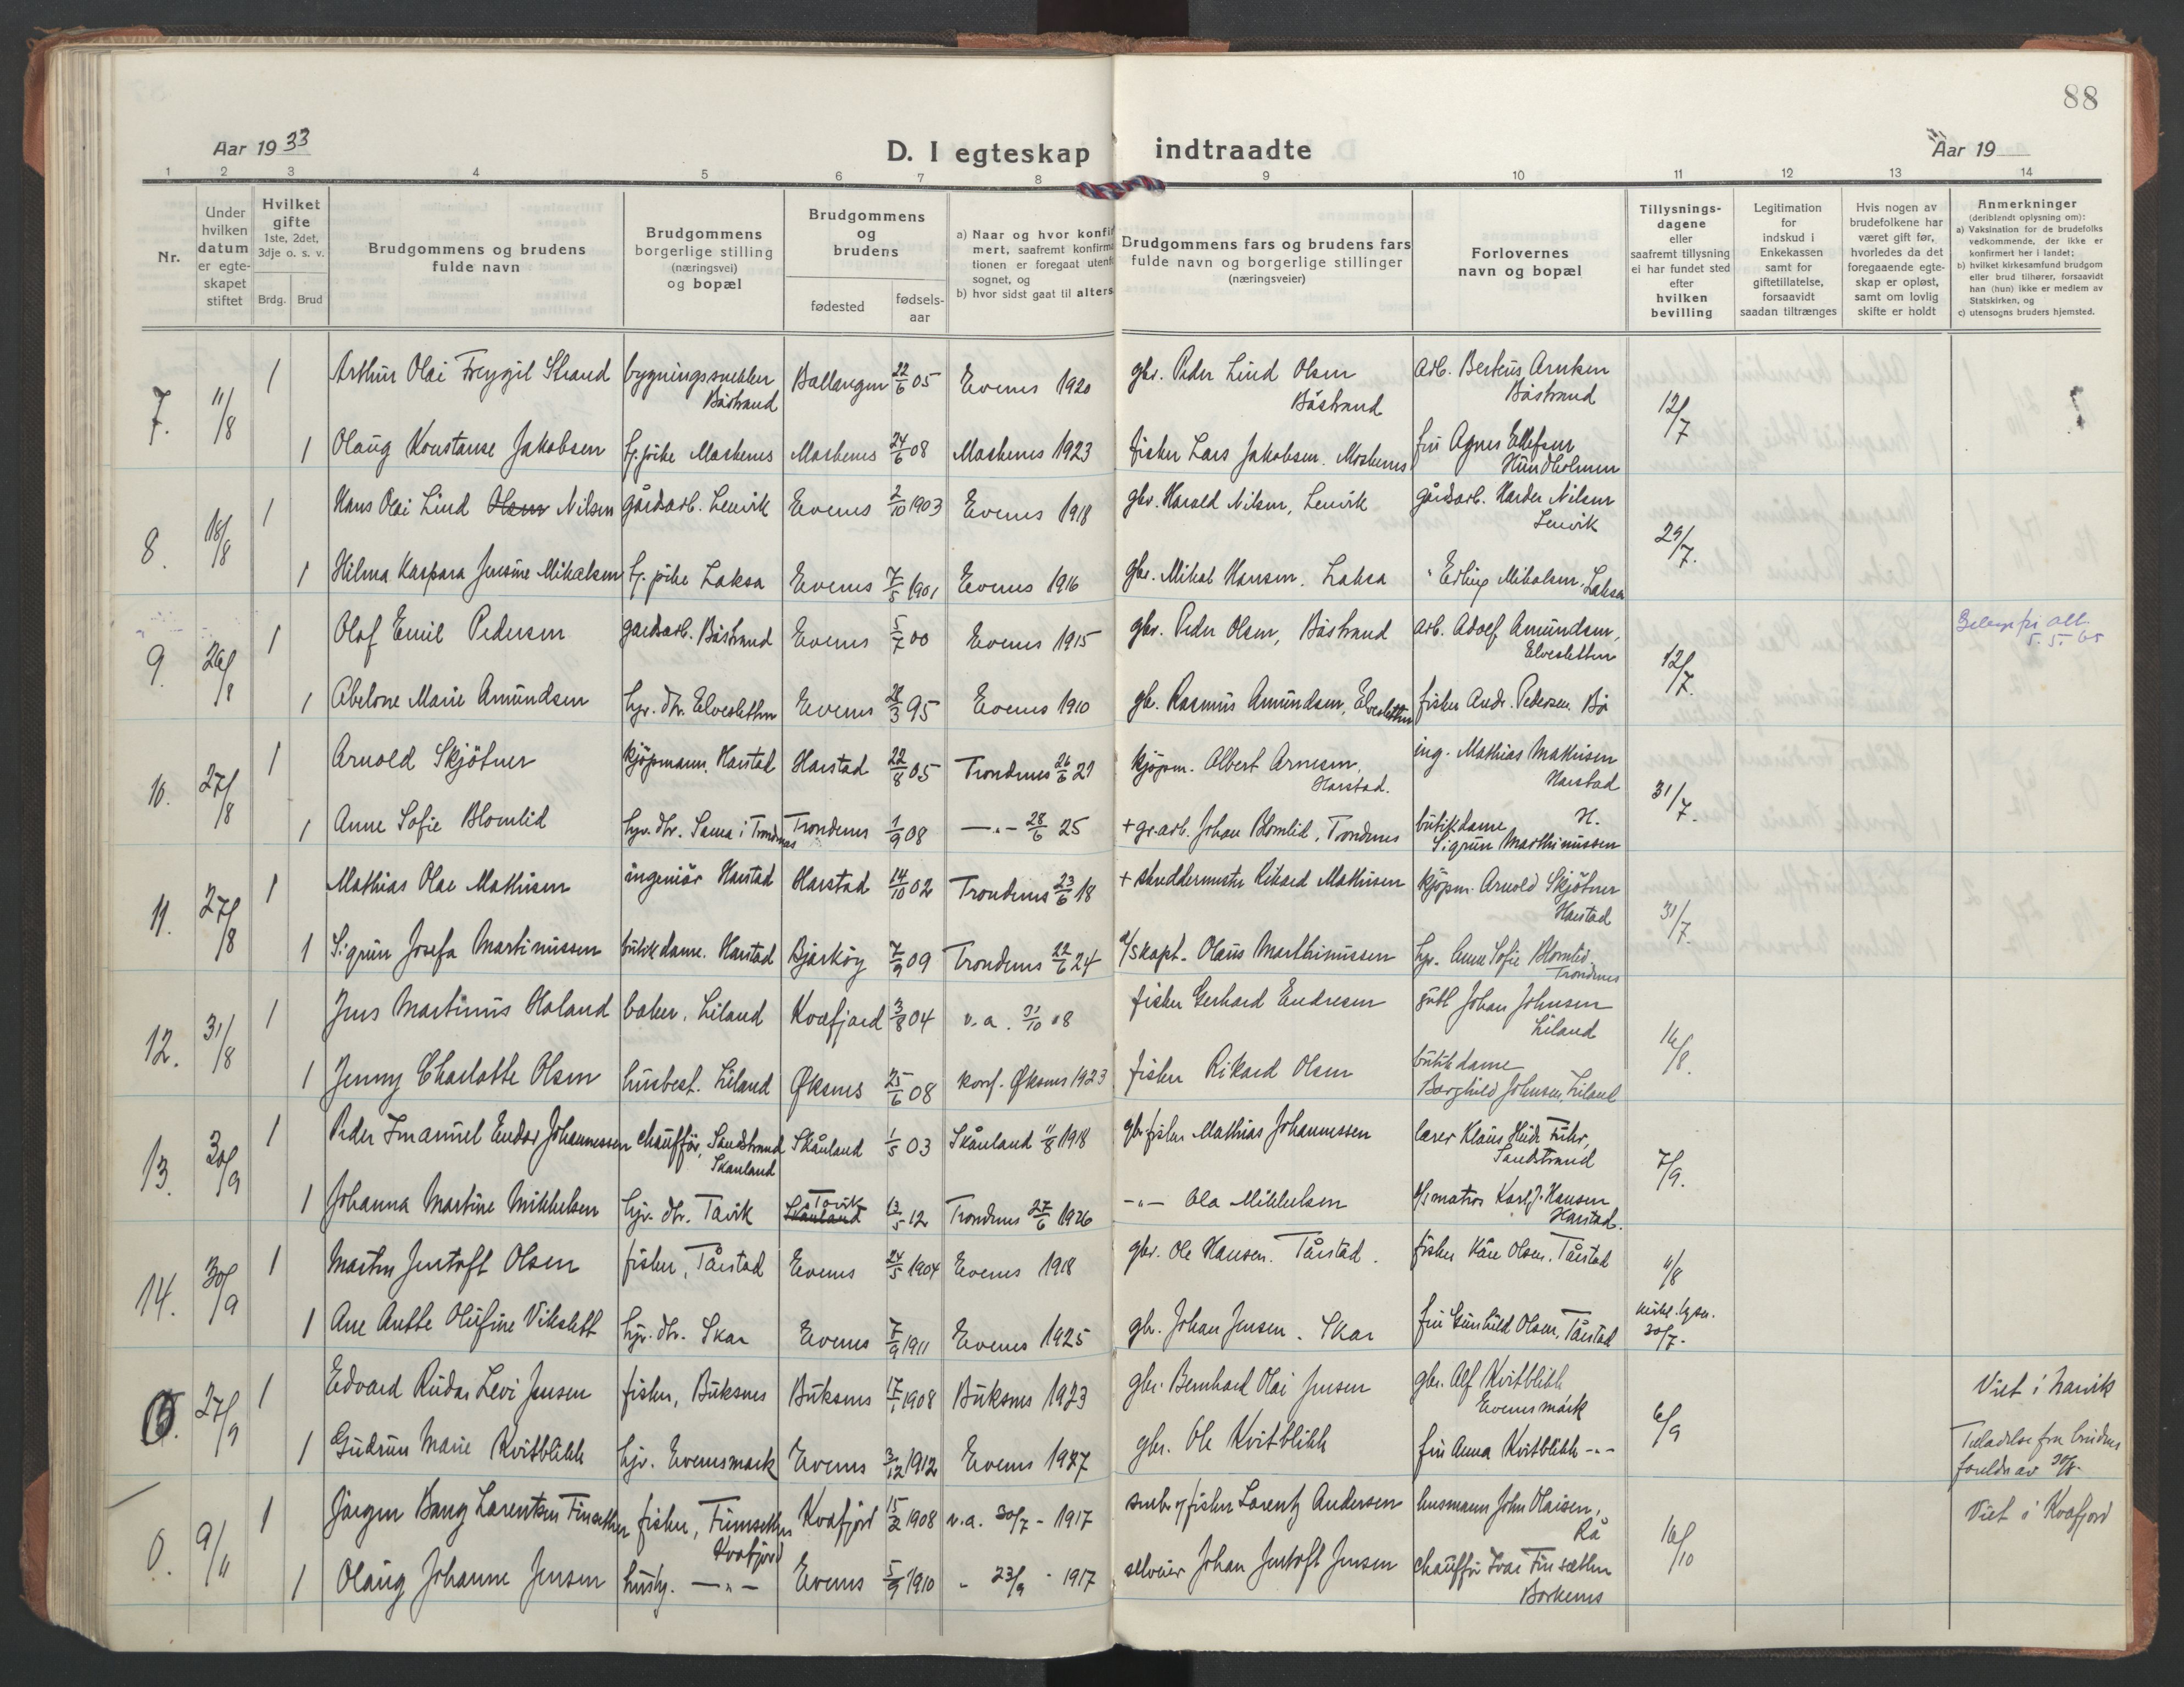 88
Aar 1933
D. I egteskap indtraadte
Aar 19
1 2 3 4 5 6 7 8 9 10 11 12 13 14
Nr.
Under hvilken datum er egte-skapet stiftet
Hvilket gifte 1ste, 2det, 3dje o. s. v.
Brdg. Brud
Brudgommens og brudens fulde navn
Brudgommens borgerlige stilling (næringsvei) og bopæl
Brudgommens og brudens
fødested
fødsels-aar
a) Naar og hvor konfir
mert, saafremt konfirma
tionen er foregaat utenfo
sognet, og
b) hvor sidst gaat til alters
Brudgommens fars og brudens fars fulde navn og borgerlige stillinger (næringsveier)
Forlovernes navn og bopæl
Tillysnings-dagene eller saafremt tillysning ei har fundet sted efter hvilken bevilling
Legitimation for indskud i Enkekassen samt for giftetillatelse, forsaavidt saadan tiltrænges
Hvis nogen av brudefolkene har været gift før, hvorledes da det foregaaende egte-skap er opløst, samt om lovlig skifte er holdt
Anmerkninger
(deriblandt oplysning om):
a) Vaksination for de brudefolks vedkommende, der ikke er konfirmert her i landet;
b) hvilket kirkesamfund brudgom eller brud tilhører, forsaavidt han (hun) ikke er medlem av Statskirken, og
c) utensogns bruders hjemsted.
7. 11/8 1 Arthur Olai Freygil Strand bygningssnekker Båstrand Ballangen 22/6 05 Evenes 1920 gbr. Peder Lind Olsen Båstrand arb. Berteus Arntsen Båstrand 12/7
1 Olaug Konstanse Jakobsen hj. pike Maskenes Maskenes 24/6 08 Maskenes 1923 fisker Lars Jakobsen. Maskenes fru Agnes Ellefsen Hundholmen
8. 18/8 1 Hans Olai Lind Olsen Nilsen gårdsarb. Lenvik Evenes 2/10 1903 Evenes 1918 gbr. Harald Nilsen, Lenvik gårdsarb. Harder Nilsen Lenvik 29/7.
1 Hilma Kaspara Jensine Mikalsen hj. pike Laksa Evenes 7/5 1901 Evenes 1916 gbr. Mikal Hansen. Laksa " Erling Mikalsen, Laksa
9. 26/8 1 Olaf Emil Pedersen gardsarb. Båstrand Evenes 5/7 00 Evenes 1915 gbr. Peder Olsen, Båstrand arb. Adolf Amundsen, Elvesletten 12/7. att. 5.5.65
1 Abelone Marie Amundsen hjv. dtr. Elvesletten Evenes 28/3 95 Evenes 1910 gbr. Rasmus Amundsen, Elvesletten fisker Andr. Pedersen Bø
10. 27/8 1 Arnold Skjötner kjöpmann, Harstad Harstad 22/8 05 Trondenes 26/6 21 kjöpm. Albert Arnesen, Harstad. ing. Mathias Mathisen Harstad 31/7.
1 Anne Sofie Blomlid hjv. dtr. Sama i Trondenes Trondenes 1/9 08 —"— 28/6 25 + gr.arb. Johan Blomlid, Trondenes butikdame H. Sigrun Marthinussen
11. 27/8 1 Mathias Olai Mathisen ingeniör Harstad Harstad 14/10 02 Trondenes 23/6 18 + skreddermester Rikard Mathisen kjöpm. Arnold Skjötner Harstad 31/7.
1 Sigrun Josefa Martinussen butikdame. Harstad Bjarköy 7/9 09 Trondenes 22/6 24 d/skapt. Olaus Marthinussen hjv. Anne Sofie Blomlid Trondenes
12. 31/8 1 Jens Martinus Holand baker. Liland Kvæfjord 3/8 04 v.a. 31/10 08 fisker Gerhard Endresen Johan Johnsen Liland 16/8.
1 Jenny Charlotte Olsen husbest. Liland Öksnes 25/6 08 konf. Öksnes 1923 fisker Rikard Olsen butikdame Borghild Johnsen, Liland
13. 30/9 1 Peder Imanuel Endor Johannessen chaufför, Sandstrand Skånland Skånland 1/5 03 Skånland 11/8 1918 gbr. fisker Mathias Johannessen lærer Klaus Heide Führ, Sandstrand 7/9.
1 Johanna Martine Mikkelsen hjv. dtr. Tovik Skånland Tovik 13/5 12 Trondenes 27/6 1926 —"— Ola Mikkelsen d/s matros Karl J. Hansen Harstad.
14. 30/9 1 Martin Jentoft Olsen fisker, Tårstad Evenes 24/5 1904 Evenes 1918 gbr. Ole Hansen. Tårstad. fisker Kåre Olsen. Tårstad 11/8
1 Ane Anette Olufine Vikslett hjv. dtr. Skar Evenes 7/9 1911 Evenes 1925 gbr. Johan Jensen. Skar fru Gunhild Olsen, Tårstad 30/7.
27/9 1 Edvard Rudar Levi Jensen fisker, Buksnes Buksnes 17/1 1908 Buksnes 1923 gbr. Bernhard Olai Jensen gbr. Alf Kvitblikk Evenesmark 6/9 Viet i Narvik
1 Gudrun Marie Kvitblikk hjv. Evenesmark Evenes 3/12 1912 Evenes 1927 gbr. Ole Kvitblikk fru Anna Kvitblikk —"— Tilladelse fra brudens foreldre av 30/8.
0. 9/11 1 Jörgen Bang Larentsen Finsæther fisker, Finnsæther Kvæfjord Kvæfjord 15/2 1908 v.a. 30/7 - 1917 fisker Larentz Andersen husmann John Olaisen, Rå 16/10 Viet i Kvæfjord
1 Olaug Johanne Jensen hushj. —"— Evenes 5/9 1910 " 23/9 - 1917 selveier Johan Jentoft Jensen chauffør Ivar Finsæther Borkenes